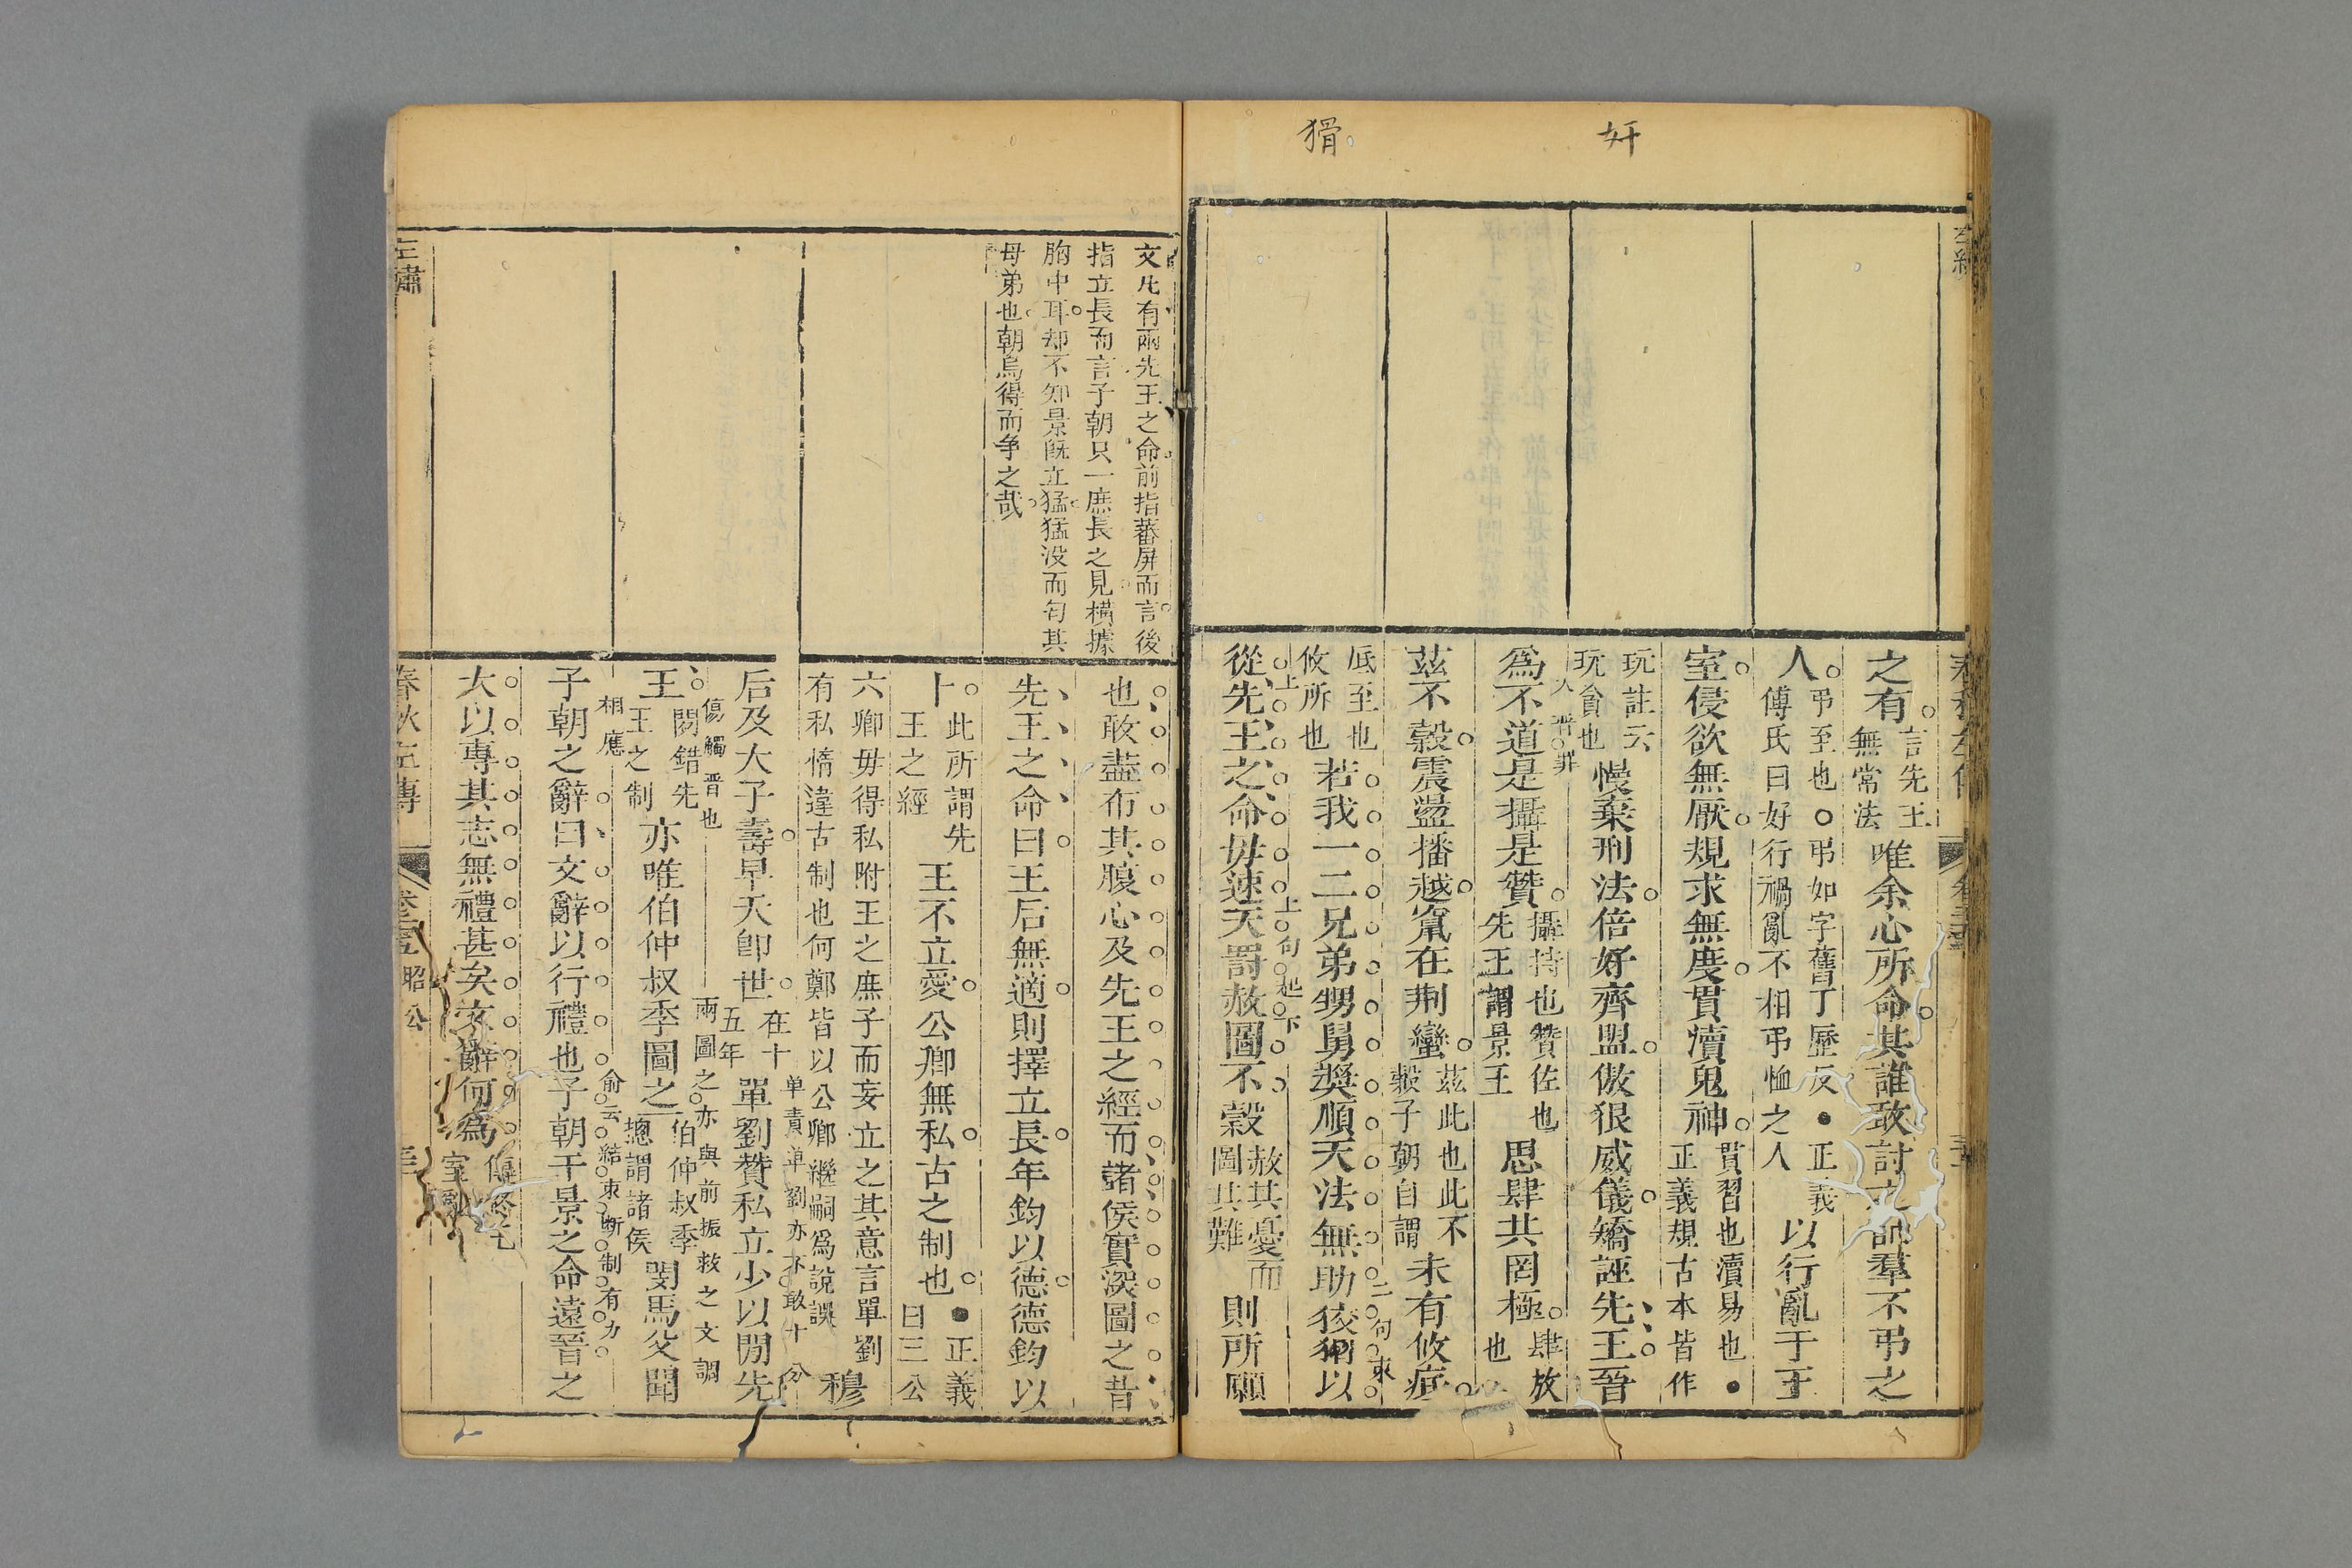 奸
猾
之有言先王無常法唯余心所命其誰敢討之帥羣不弔之
人弔至也○弔如字舊丁歷反●正義傅氏曰好行禍亂不相弔恤之人以行亂于王
室侵欲無厭規求無度貫瀆鬼神貫習也瀆易也●正義規古本皆作
玩註云玩貪也慢棄刑法倍奸齊盟傲狠威儀矯誣先王晉
為不道是攝是贊攝持也贊佐也先王謂景王思肆其罔極肆放也
大晉罪
茲不穀震盪播越竄在荆蠻茲此也此不穀子朝自謂未有攸底
厎至也攸所也若我一二兄弟甥舅奬順天法無助狡猾以
二句束
從先王之命毋速天罰赦圖不穀赦其憂而圖其難則所願
上上句起下
文凡有兩先王之命前指蕃屏而言後
指立長而言子朝只一庶長之見橫據
胸中耳却不知景旣立猛猛没而匄其
母弟也朝烏得而争之哉
也敢盡布其腹心及先王之經而諸侯實深圖之昔
先王之命曰王后無適則擇立長年鈞以德德鈞以
卜此所謂先王之經王不立愛公卿無私古之制也●正義曰三公
六卿毋得私附王之庶子而妄立之其意言單劉有私惰違古制也何鄭皆以公卿繼嗣爲說誤穆
后及大子壽早夭卽世在十五年單劉贊私立少以閒先
单責單劉亦亦敢十分
王閒錯先王之制亦唯伯仲叔季圖之伯仲叔季總謂諸侯閔馬父聞
傷觸晋也
兩圖之亦與前振救之文調
子朝之辭曰文辭以行禮也子朝干景之命遠晉之
相應
俞云結束斬制有力
大以專其志無禮甚矣文辭何爲傳終王室亂
左繡
春秋左傳
昭公